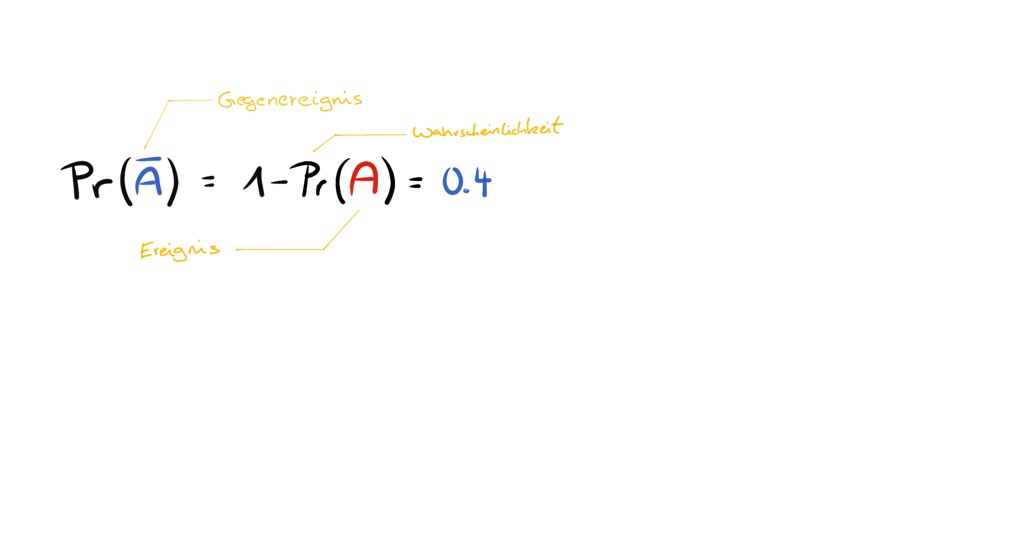 Gegenereignis
Wahrscheinlichkeit
Pr(A̅) = 1-Pr(A) = 0.4
Ereignis